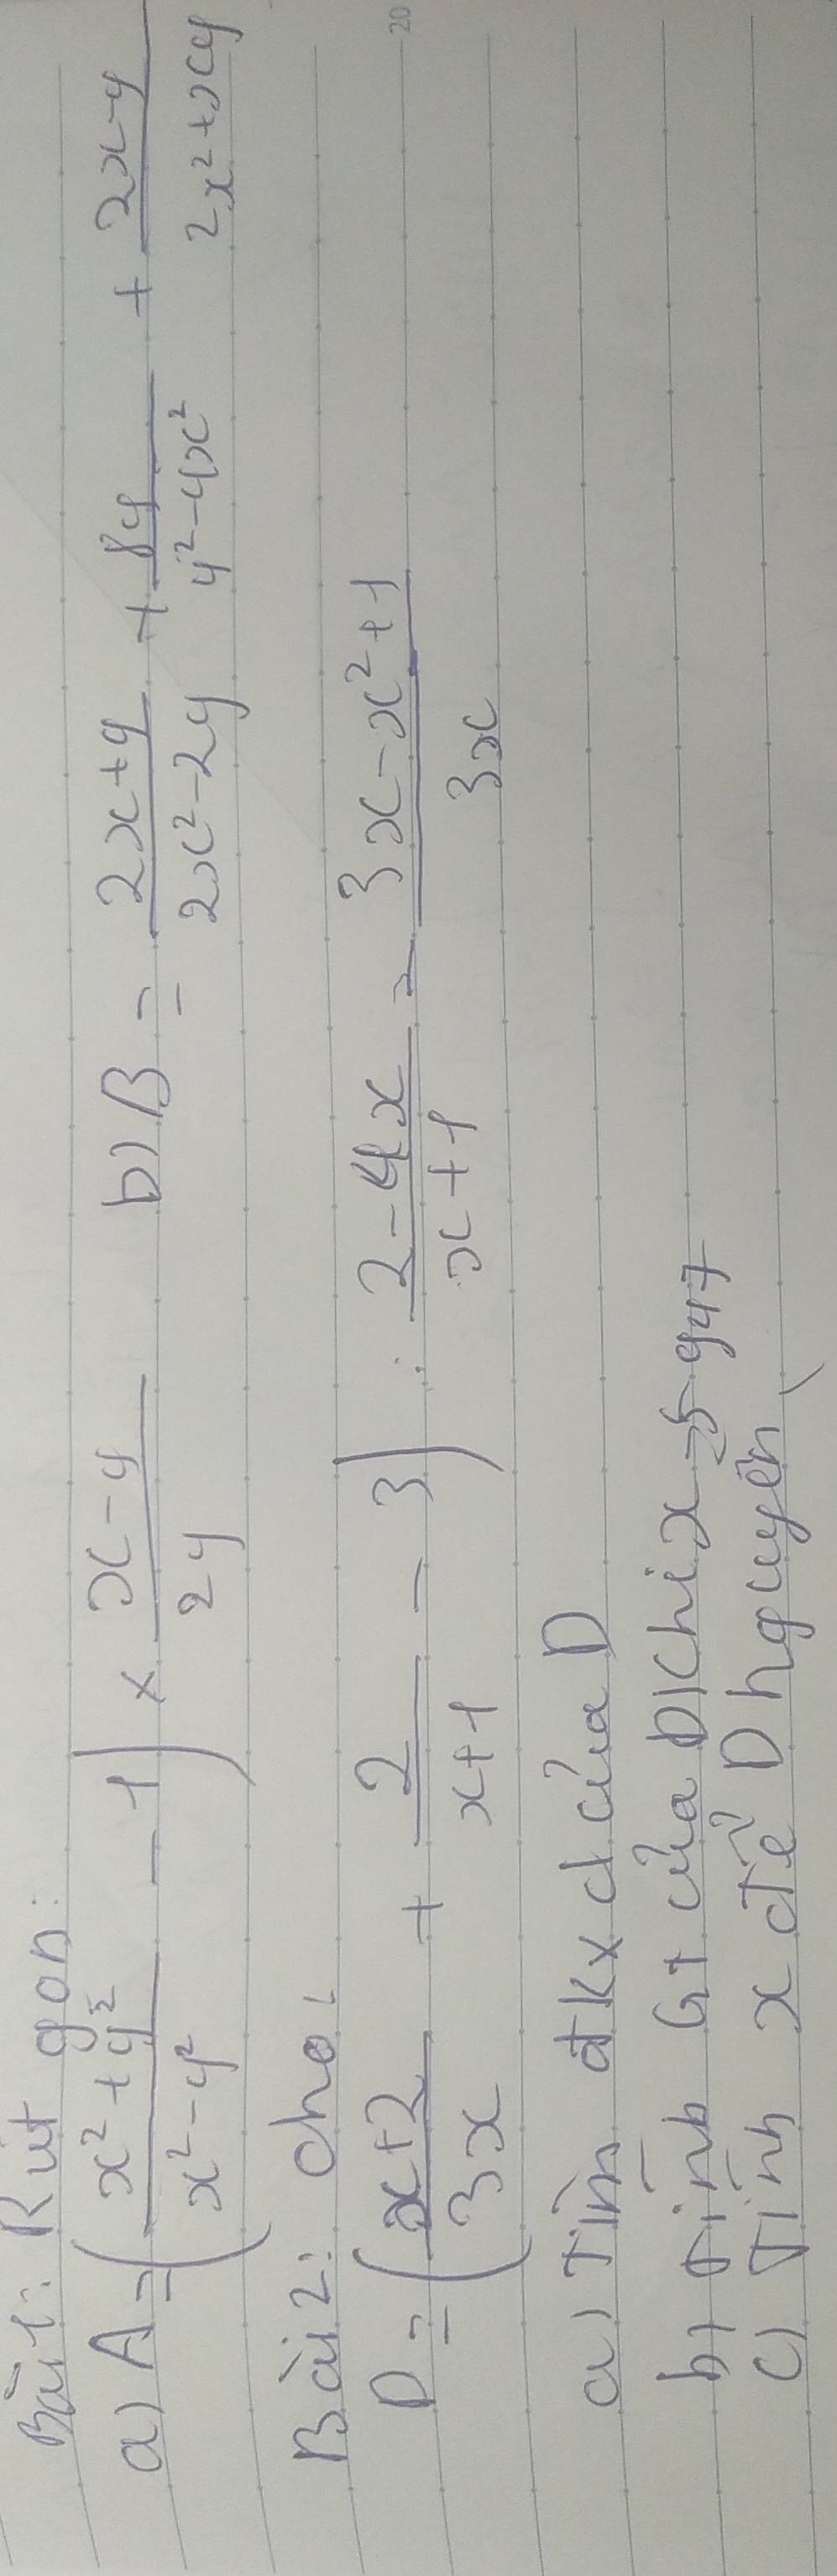 Bài 1: Rút gọn:
a) A = (x²+y²/x²-y² - 1) × x-y/2y b) B = 2x+y/2x²-2y + 8y/y²-4x² + 2x-y/2x²+xy
Bài 2: cho:
D = (x+2/3x + 2/x+1 - 3) : 2-4x/x+1 - 3x-x²+1/3x
a) Tìm đkxđ của D
b) Tính GT của D khi x = 5947
c) Tính x để D nguyên
20